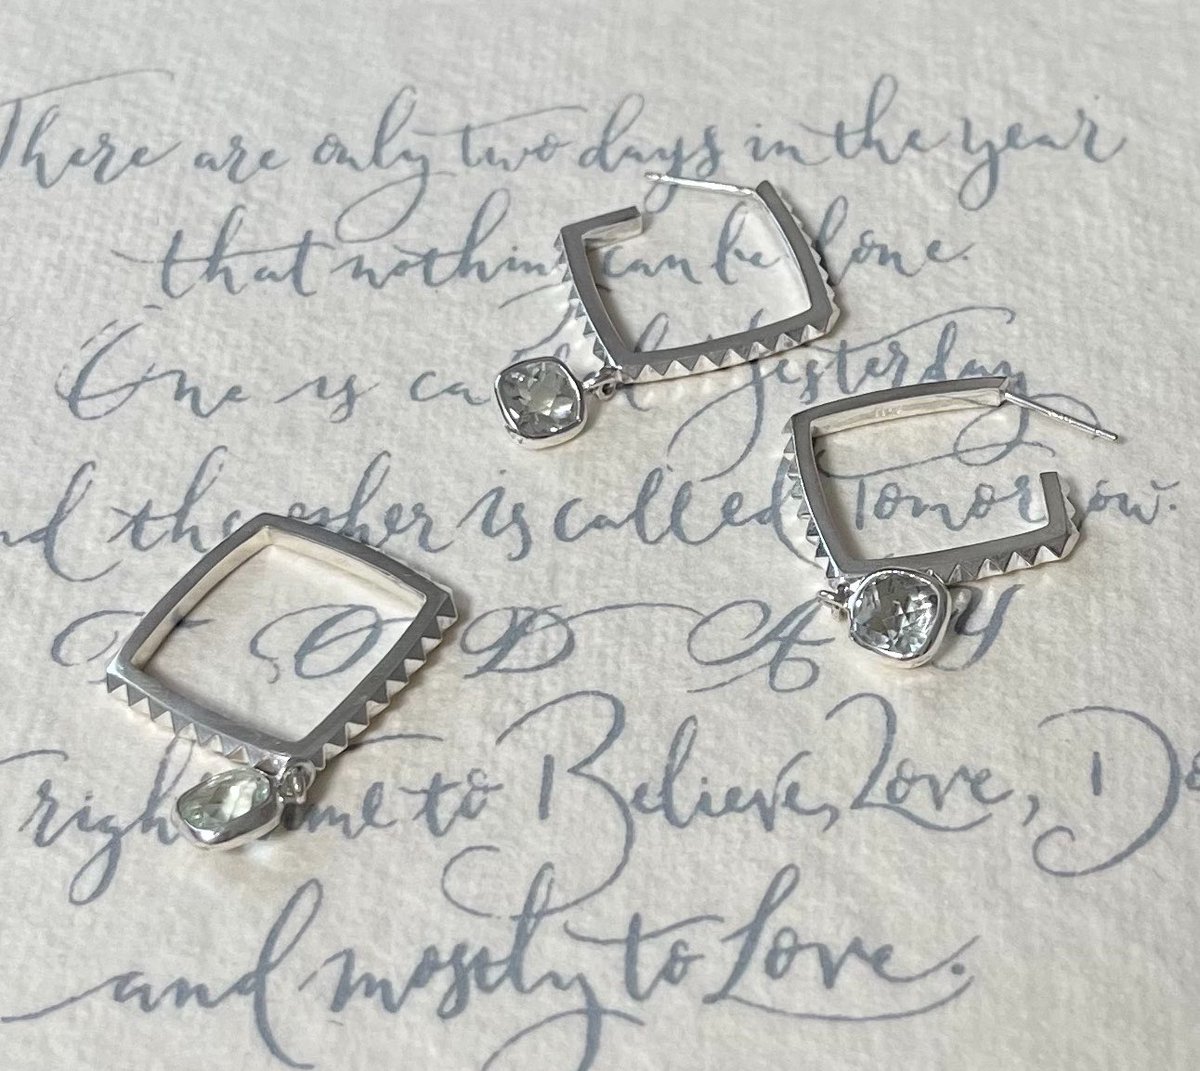 There are only two days in the year
that nothing can be done.
One is called Yesterday
and the other is called Tomorrow.
TODAY
right time to Believe, Love, Do
and mostly to Love.